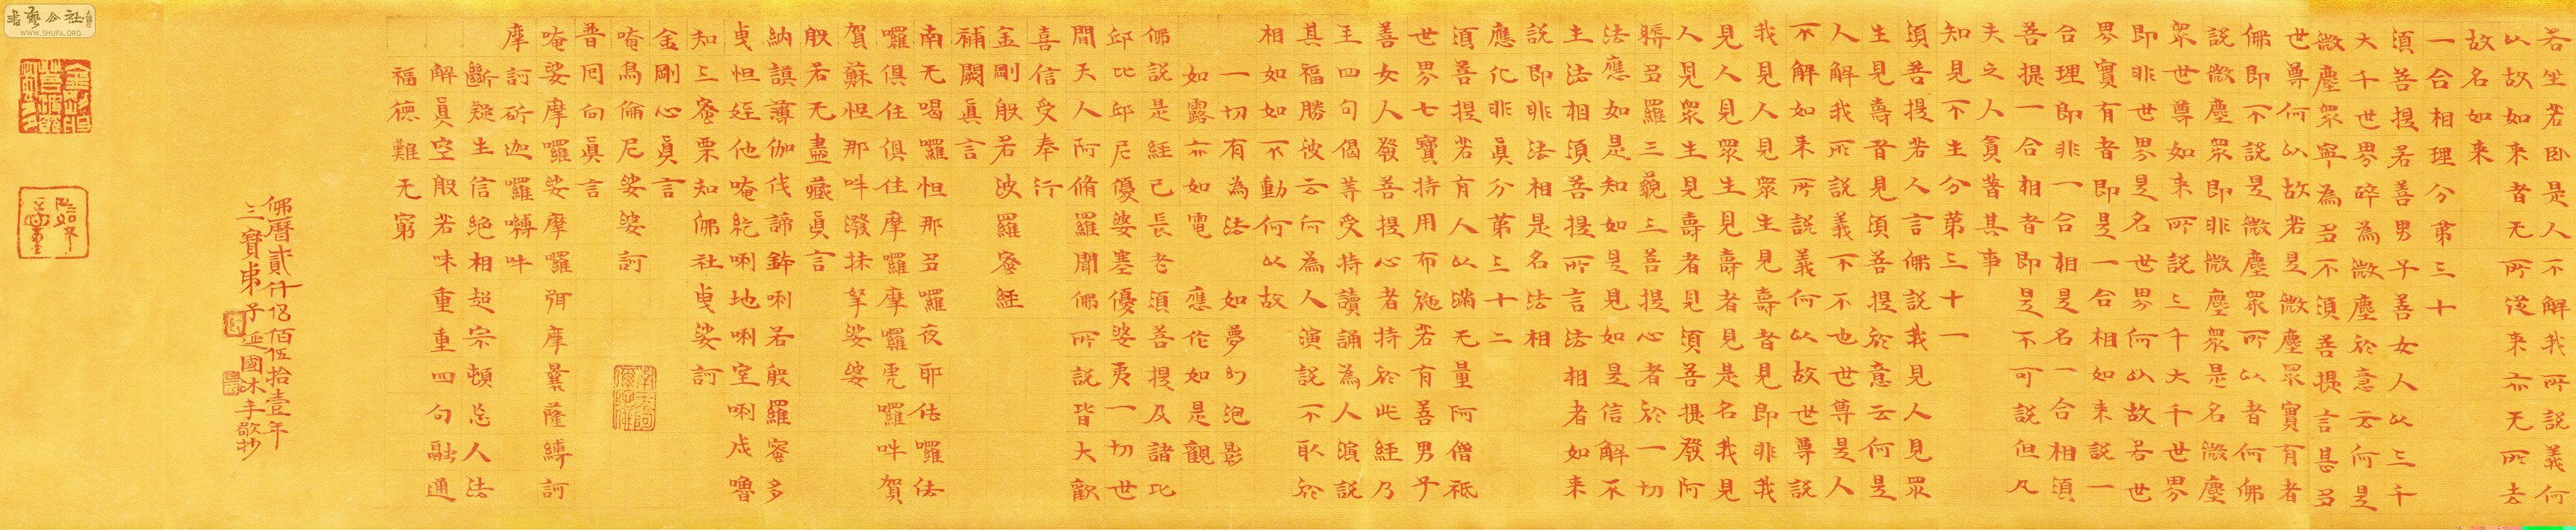 若坐若卧是人不解我所說義何
以故如来者无所従来亦无所去
故名如来
一合相理分苐三十
須菩提若善男子善女人以三千
大千世界碎為微塵於意云何是
微塵眾寧為多不須菩提言甚多
世尊何以故若是微塵眾實有者
佛即不說是微塵眾所以者何佛
說微塵眾即非微塵眾是名微塵
眾世尊如来所說三千大千世界
即非世界是名世界何以故若世
界實有者即是一合相如来說一
合理即非一合相是名一合相須
菩提一合相者即是不可說但凡
夫之人貪著其事
知見不生分苐三十一
須菩提若人言佛說我見人見眾
生見壽者見須菩提於意云何是
人解我所說義不不也世尊是人
不解如来所說義何以故世尊說
我見人見眾生見壽者見即非我
見人見眾生見壽者見是名我見
人見眾生見壽者見須菩提發阿
耨多羅三藐三菩提心者於一切
法應如是知如是見如是信解不
生法相須菩提所言法相者如来
說即非法相是名法相
應化非真分苐三十二
須菩提若有人以滿无量阿僧祇
世界七寶持用布施若有善男子
善女人發菩提心者持於此経乃
至四句偈等受持讀誦為人演說
其福勝彼云何為人演說不取於
相如如不動何以故
一切有為法 如夢幻泡影
如露亦如電 應作如是觀
佛說是経已長老須菩提及諸比
邱比邱尼優婆塞優婆夷一切世
間天人阿脩羅聞佛所說皆大歡
喜信受奉行
金剛般若波羅蜜経
補闕真言
南无喝囉怛那多囉夜耶佉囉佉
囉俱住俱住摩囉摩囉虎囉吽賀
賀蘇怛那吽潑抹拏娑婆
般若无盡藏真言
納謨薄伽伐諦鉢唎若般羅蜜多
曳怛姪他唵紇唎地唎室唎戍嚕
知三蜜栗知佛社曳娑訶
金剛心真言
唵烏倫尼娑婆訶
普回向真言
唵娑摩囉娑摩囉弭摩曩薩縛訶
摩訶斫迦囉嚩吽
斷疑生信絶相超宗頓忘人法
解真空般若味重重四句融通
福德難无窮
佛曆貳仟伍佰伍拾壹年
三寶弟子延國沐手敬抄
書藝公社
WWW.SHUFA.ORG